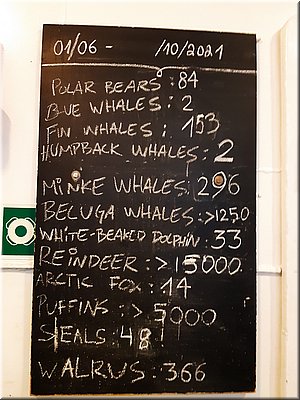 01/06 - /10/2021
POLAR BEARS: 84
BLUE WHALES: 2
FIN WHALES: 153
HUMPBACK WHALES: 2
MINKE WHALES: 296
BELUGA WHALES: >1250
WHITE-BEAKED DOLPHIN: 33
REINDEER: > 15000
ARCTIC FOX: 14
PUFFINS: > 5000
SEALS: 48
WALRUS: 366